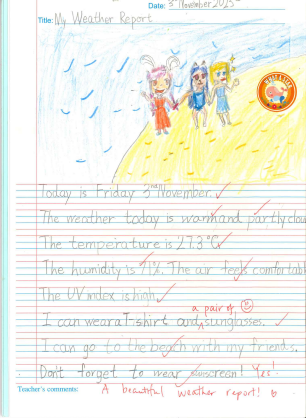 Date: 3rd November 2023
Title: My Weather Report
Today is Friday 3rd November.
The weather today is warm and partly clou
The temperature is 27.3°C
The humidity is 71%. The air feels comfortabl
The UV index is high.
a pair of
I can wear a T-shirt and sunglasses.
I can go to the beach with my friends.
Don't forget to wear sunscreen! Yes!
Teacher's comments: A beautiful weather report!